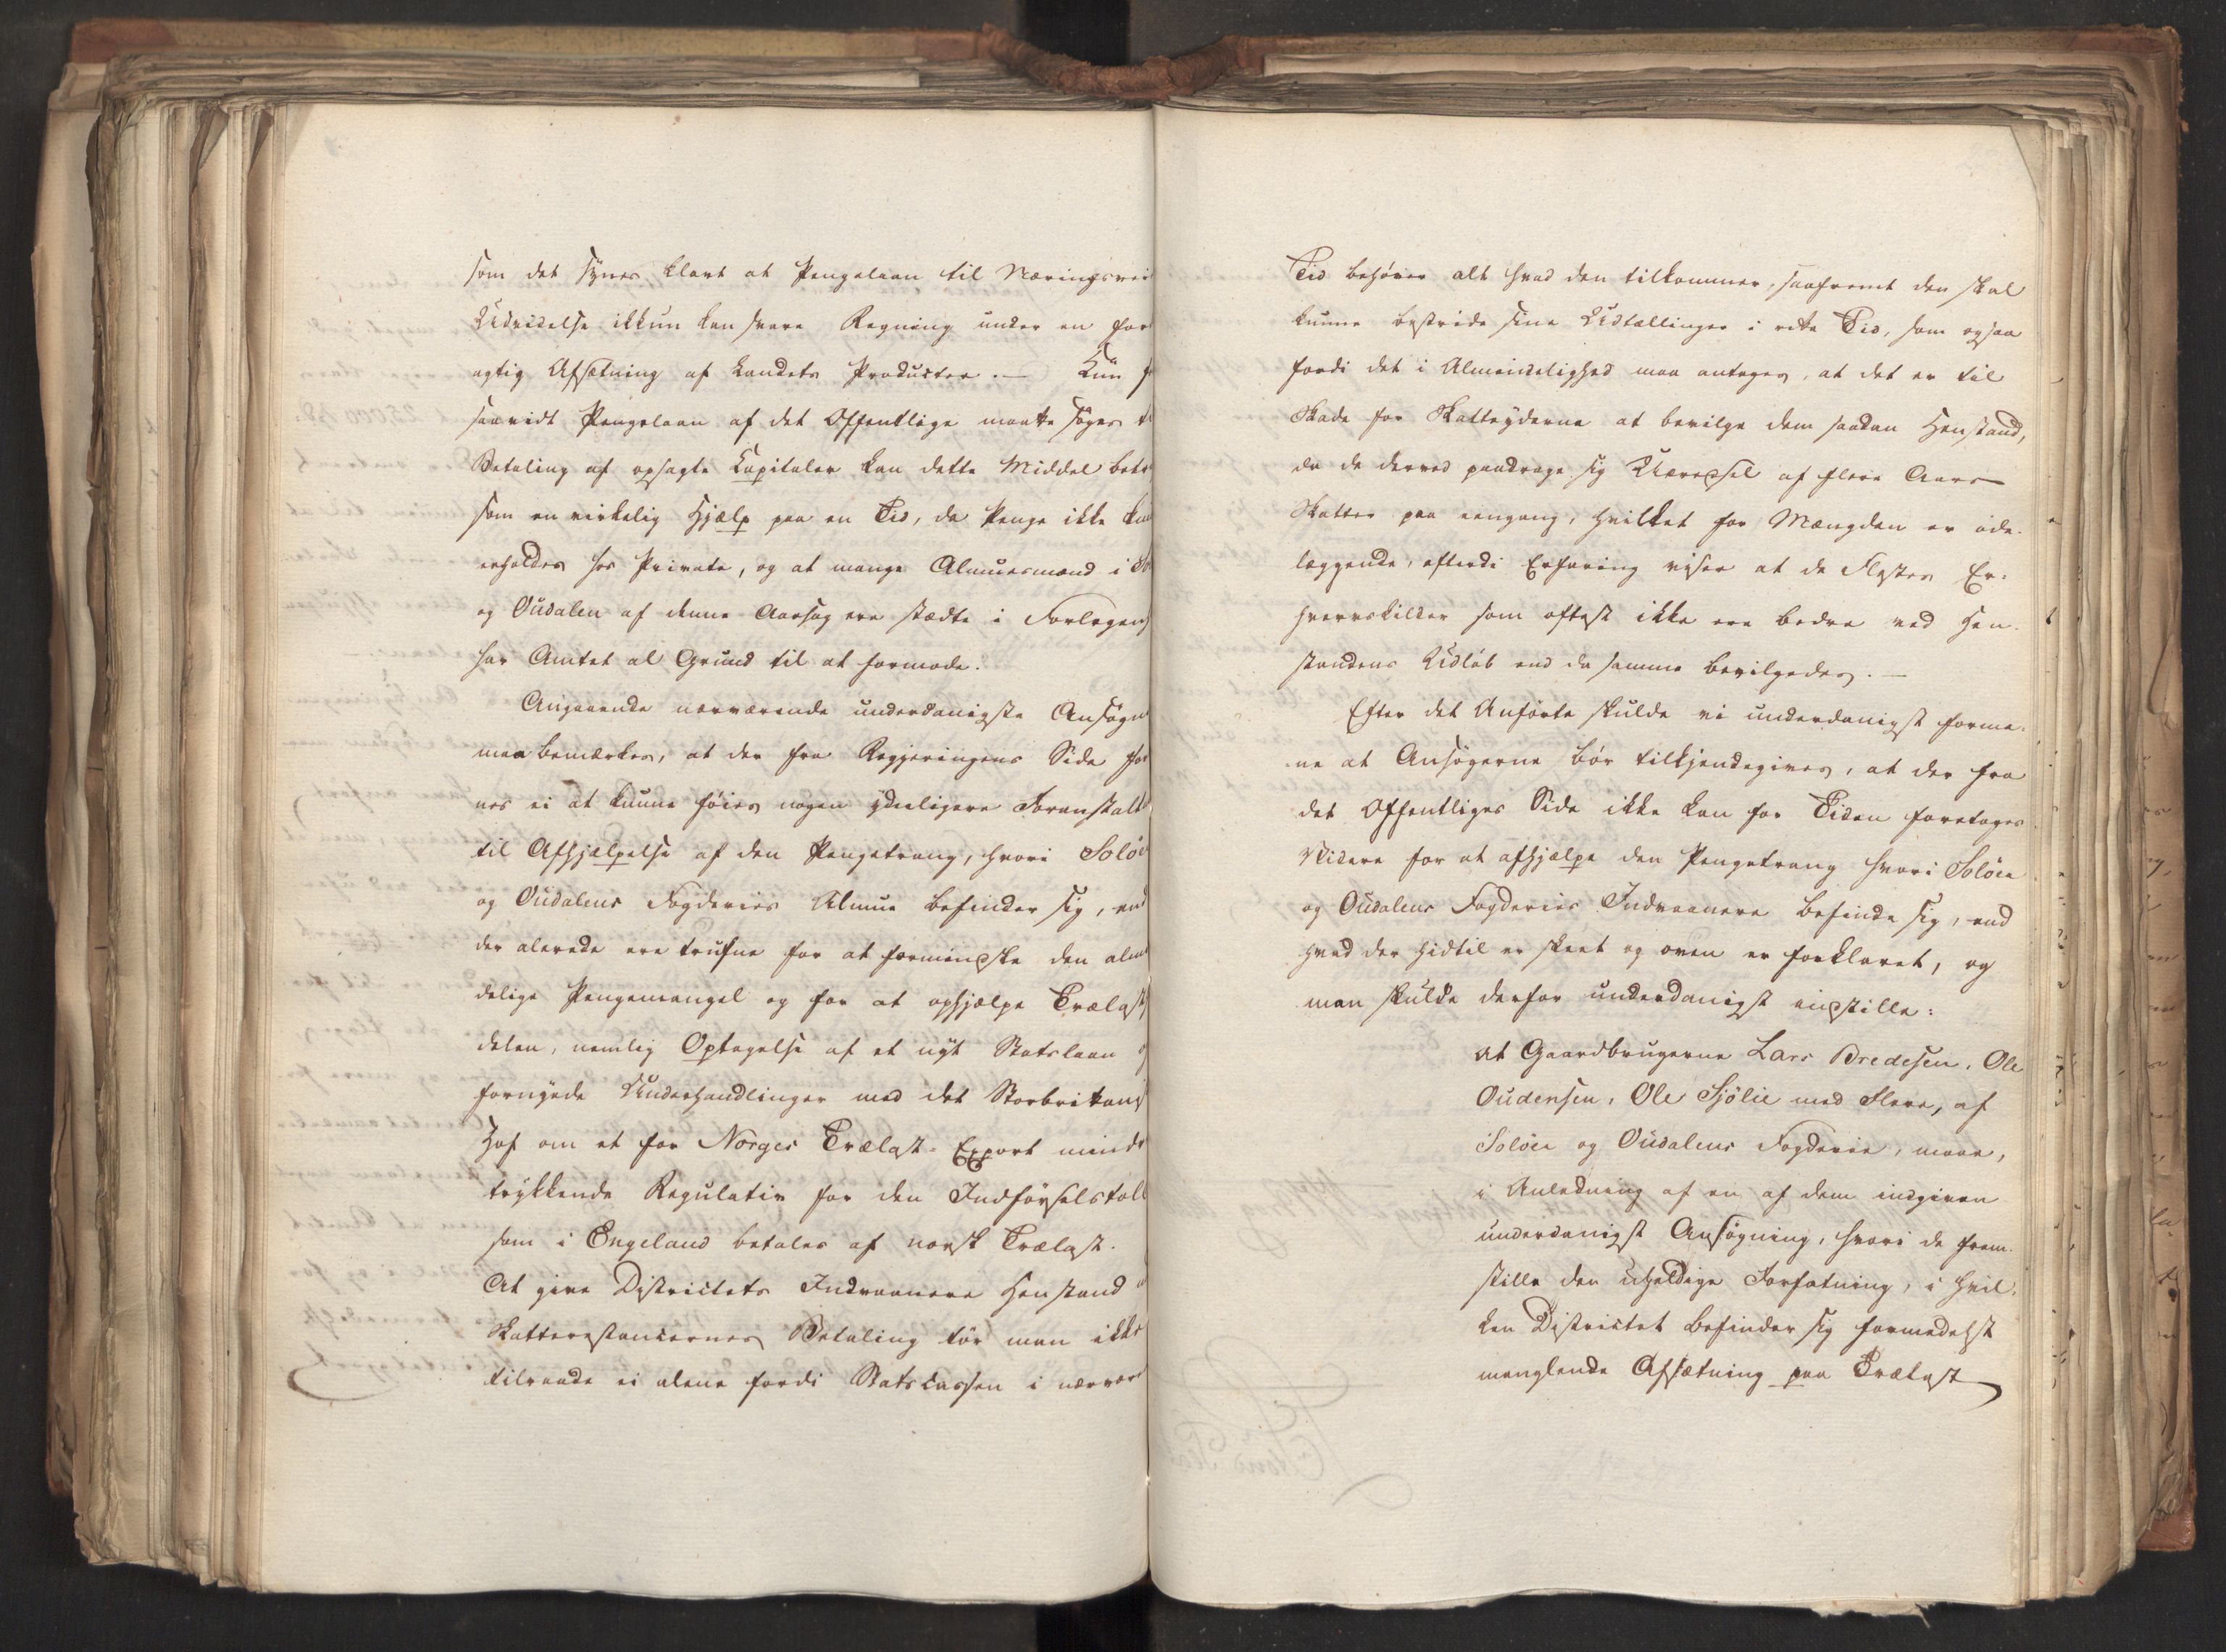 som det synes klart at Pengelaan til Næringsvei
Udvidelse ikkun kan svare Regning under en for
agtig Afsætning af Landets Producter. — Kun f
saavidt Pengelaan af det Offentlige maatte søges t
Betaling af opsagte Capitaler kan dette Middel betr
som en virkelig Hjælp paa en Tid, da Penge ikke kun
erholdes hos Private, og at mange Almuesmænd i So
og Oudalen af denne Aarsag ere stædte i Forlegen
har Amtet al Grund til at formode.
Angaaende nærværende underdanigste Ansøgn
maa bemærkes, at der fra Regjeringens Side for
nes ei at kunne føies nogen ydeligere Foranstalt
til Afhjælpelse af den Pengetrang, hvori Soløe
og Oudalens Fogderies Almue befinder sig, end
der alerede ere trufne for at formindske den almi
delige Pengemangel og for at ophjælpe Trælast
delen, nemlig Optagelse af et nyt Statslaan o
fornyede Underhandlinger med det Storbritans
Hof om et for Norges Trælast-Export mindr
trykkende Regulativ for den Indførselstold
som i Engeland betales af norsk Trælast.
At give Districtets Indvaanere Henstand
Skatterestancernes Betaling tör man ikke
tilraade ei alene fordi Statscassen i nærvær
Tid behöver alt hvad den tilkommer, saafremt den skal
kunne bestride sine Udtællinger i rette Tid, som ogsaa
fordi det i Almindelighed maa antages, at det er til
Skade for Skatteyderne at bevilge dem saadan Henstand,
da de derved paadrage sig Udredsel af flere Aars
Skatter paa eengang, hvilket for Mængden er öde-
læggende, efterdi Erfaring viser at de Flestes Er-
hvervskilder som oftest ikke ere bedre ved Hen-
standens Udløb end da samme bevilgedes. —
Efter det Anførte skulde vi underdanigst forme-
ne at Ansøgerne bør tilkjendegives, at der fra
det Offentliges Side ikke kan for Tiden foretages
Videre for at afhjælpe den Pengetrang hvori Soløer
og Oudalens Fogderies Indvaanere befinde sig, end
hvad der hidtil er skeet og oven er forklaret, og
man skulde derfor underdanigst indstille:
at Gaardbrugerne Lars Bredesen, Ole
Oudensen, Ole Sjölie med Flere, af
Soløer og Oudalens Fogderie, maae,
i Anledning af en af dem indgiven
underdanigst Ansøgning, hvori de frem-
stille den uheldige Forfatning, i hvil-
ken Districtet befinder sig formedelst
manglende Afsætning paa Trælast